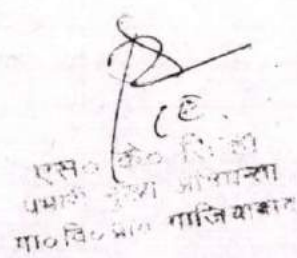 एस० के० 
प्रभारी मुख्य अभियन्ता
गा०वि०प्रा० गाजियाबाद